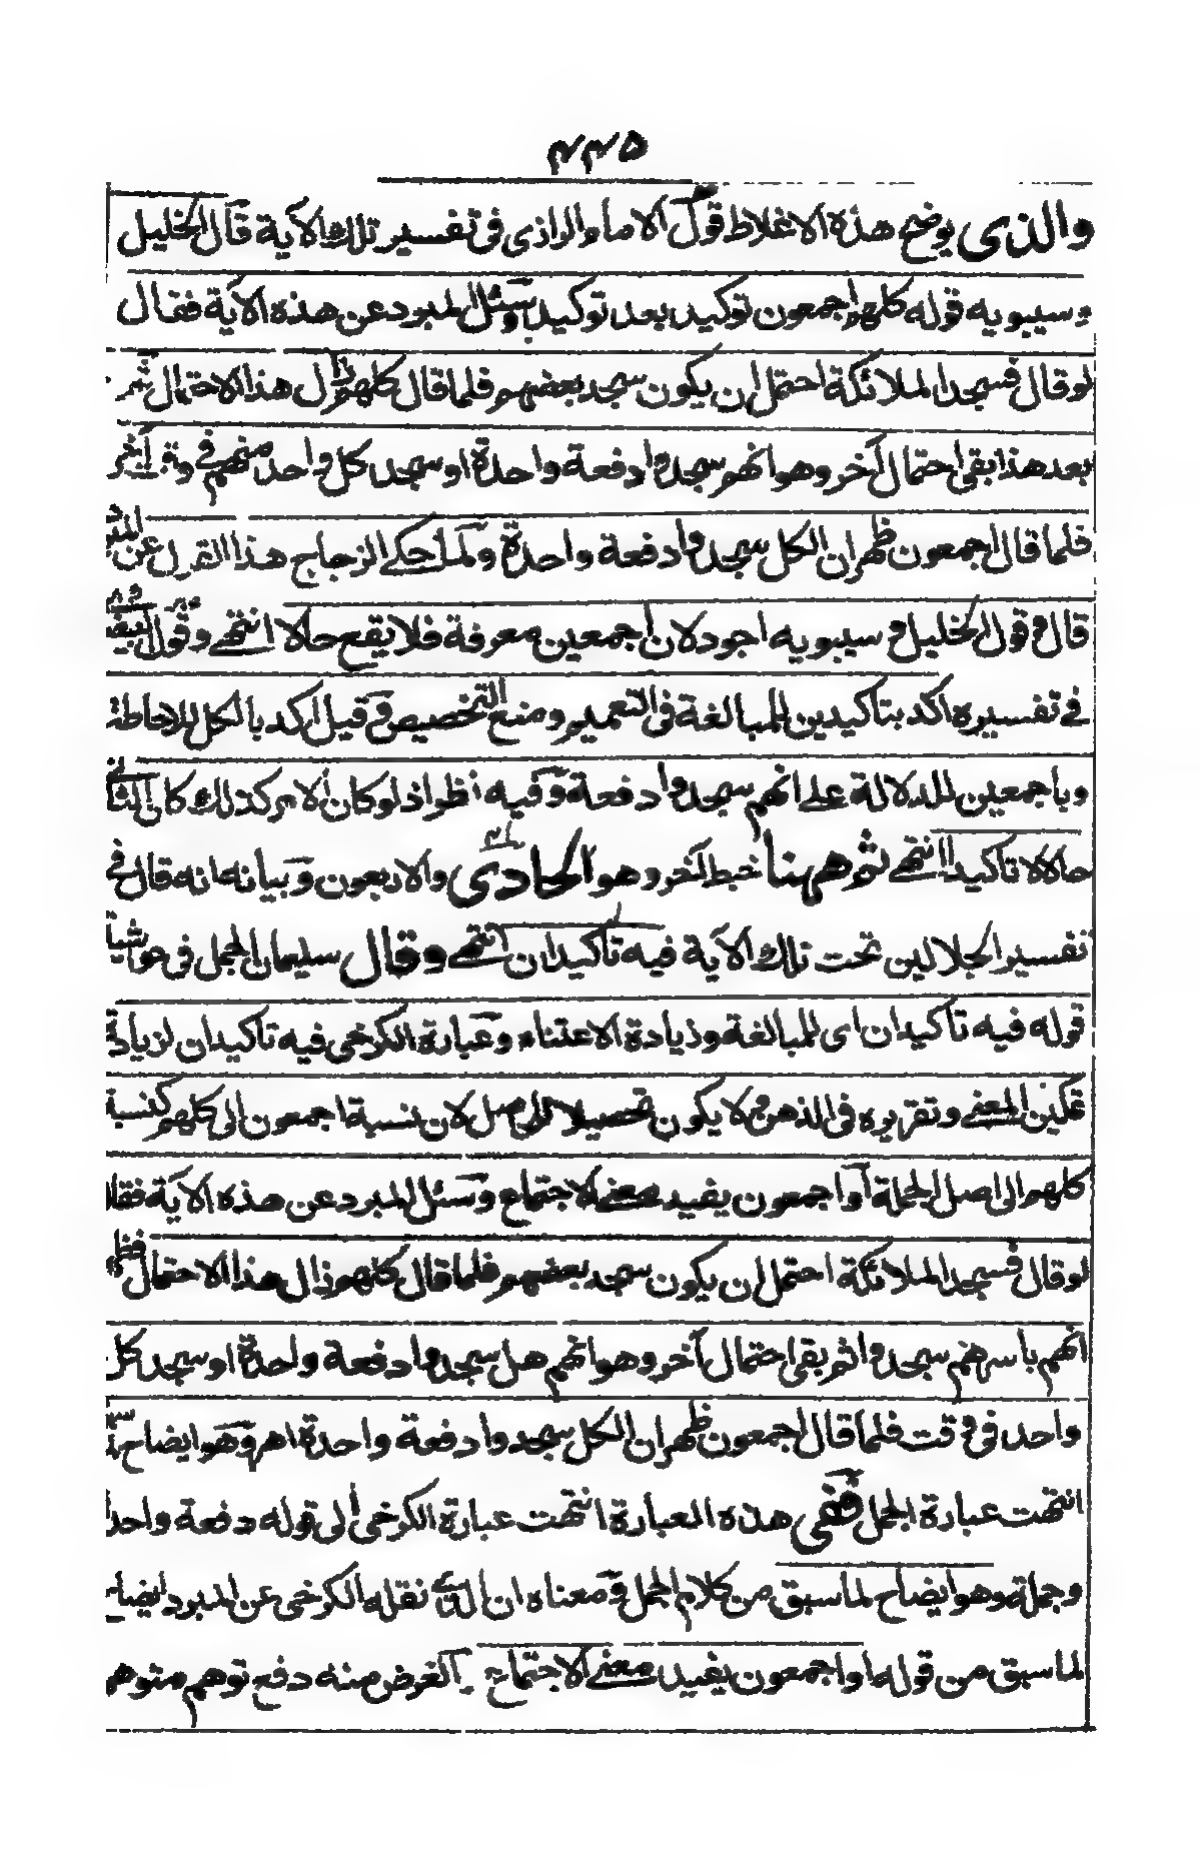 ۴۴۵
والذى يوضح هذه الاغلاط قول الامام الرازى فى تفسير تلك الآية قال الخليل
وسيبويه قوله كلهم اجمعون توكيد بعد توكيد وسئل المبرد عن هذه الآية فقال
لو قال فسجد الملائكة احتمل ان يكون سجد بعضهم فلما قال كلهم زال هذا الاحتمال ثم
بعد هذا بقى احتمال آخر وهو انهم سجدوا دفعة واحدة او سجد كل واحد منهم فى وقت آخر
فلما قال اجمعون ظهر ان الكل سجدوا دفعة واحدة ولما حكى الزجاج هذا القول عن المبرد
قال وقول الخليل وسيبويه اجود لان اجمعين معرفة فلا يقع حالا انتهى وقول البيضاوى
فى تفسيره اكد بتاكيدين للمبالغة فى التعميم ومنع التخصيص وقيل اكد بالكل للاحاطة
وباجمعين للدلالة على انهم سجدوا دفعة وفيه نظر اذ لو كان الامر كذلك كان الثانى
حالا لا تاكيدا انتهى ثم ههنا خبط آخر وهو الحادى والاربعون وبيانه انه قال فى
تفسير الجلالين تحت تلك الآية فيه تاكيدان انتهى وقال سليمان الجمل فى حواشيه
قوله فيه تاكيدان اى للمبالغة وزيادة الاعتناء وعبارة الكرخى فيه تاكيدان لزيادة
تمكين المعنى وتقريره فى الذهن ولا يكون تحصيلا للحاصل لان نسبة اجمعون الى كلهم كنسبة
كلهم الى اصل الجملة او اجمعون يفيد معنى الاجتماع وسئل المبرد عن هذه الآية فقال
لو قال فسجد الملائكة احتمل ان يكون سجد بعضهم فلما قال كلهم زال هذا الاحتمال فظهر
انهم باسرهم سجدوا ثم بقى احتمال آخر وهو انهم هل سجدوا دفعة واحدة او سجد كل
واحد فى وقت فلما قال اجمعون ظهر ان الكل سجدوا دفعة واحدة اهر وهو ايضاح
انتهت عبارة الجمل ففى هذه العبارة انتهت عبارة الكرخى الى قوله دفعة واحدة
وجملة وهو ايضاح لما سبق من كلام الجمل ومعناه ان الذى نقله الكرخى عن المبرد ايضاح
لما سبق من قوله او اجمعون يفيد معنى الاجتماع الغرض منه دفع توهم متوهم